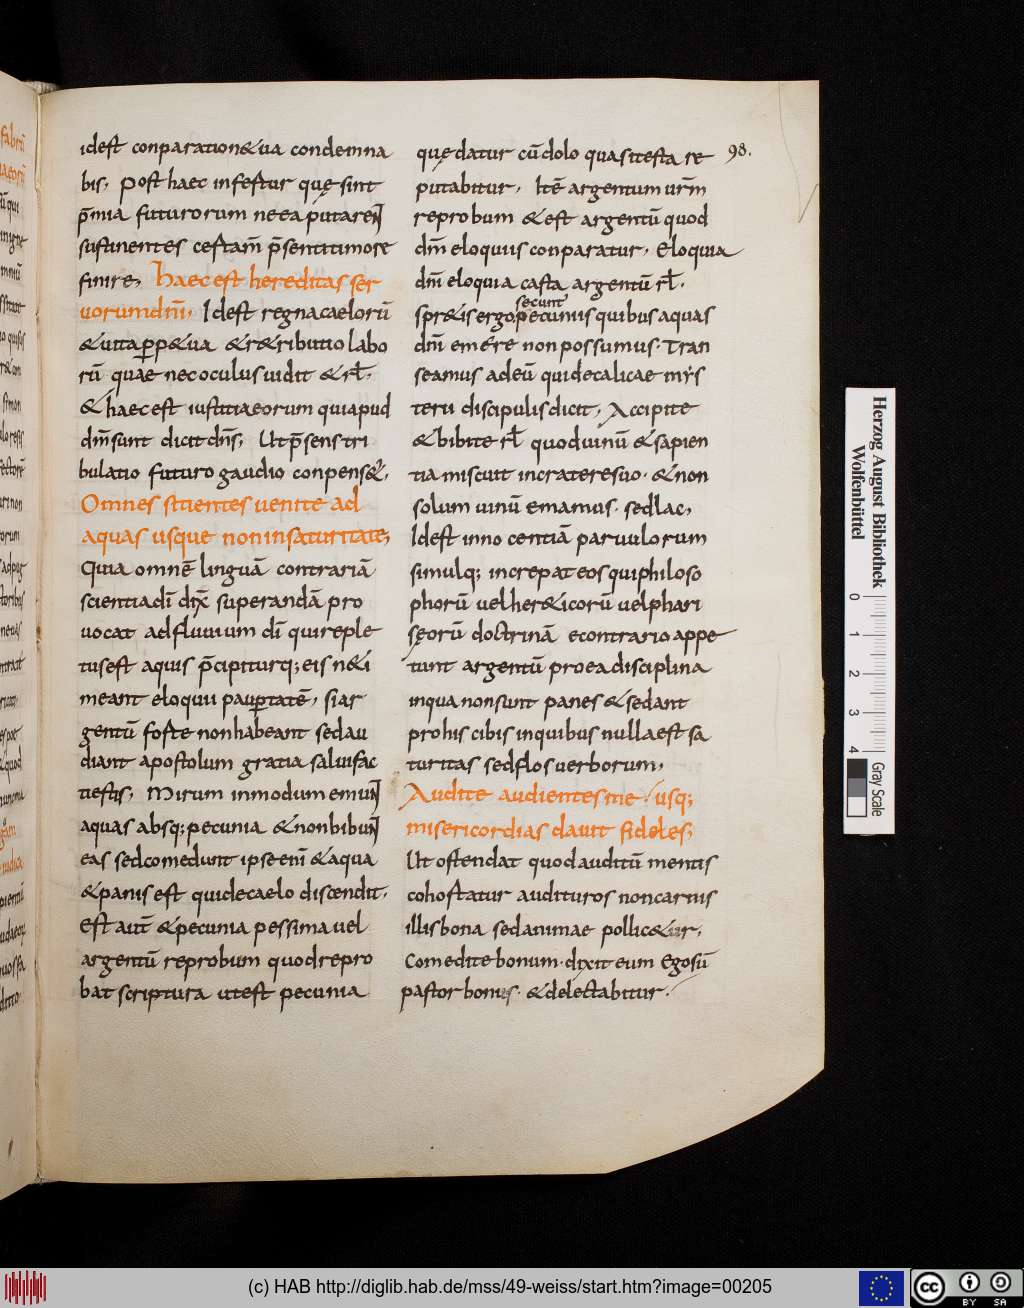 idest conparation&ua condemna
bis; post haec infestur quę sint
p̄mia futurorum neea putareN̄
sustinentes cestam̄ p̄sentitimore
finire; Haec est hereditas ser
uorum dn̄i; Idest regna caelorū
&uita ꝑp&ua &r&ributio labo
rū quae nec oculus uidit & rł;
& haec est iustitia eorum qui apud
dm̄ sunt dicit dn̄s; Ut p̄sens tri
bulatio futuro gaudio conpens&;
Omnes sitientes uenite ad
aquas usque non in saturitate;
Quia omnē linguā contrariā
scientia dī dix̄ superandā pro
uocat ad fluuium dī qui reple
tus est aquis p̄cipiturq; eis n&i
meant eloquii pauꝑtatē; si ar
gentū foste non habeant sed au
diant apostolum gratia salui fac
ti estis; Mirum in modum emuN̄
aquas absq; pecunia & non bibuN̄
eas sed comedunt ipse enī & aqua
& panis est qui de caelo discendit;
Est aut̄ & pecunia pessima uel
argentū reprobum quod repro
bat scriptura ut est pecunia
quę datur cū dolo quasi testa re
putabitur; Itē argentum ur̄m
reprobum & est argentū quod
dm̄ eloquiis conparatur; Eloquia
dm̄ eloquia casta argentū rł;
secunt
spr&is ergo pecuniis quibus aquas
dm̄ emere non possumus. Tran
seamus ad eū qui de calicae mys
terii discipulis dicit; Accipite
& bibite rł quod uinū & sapien
tia miscuit in cratere suo. & non
solum uinū emamus. sed lac;
Idest innocentiā paruulorum
simulq; increpat eos qui philoso
phorū uel her&icorū uel phari
sęorū doctrinā econtrario appe
tunt argentū pro ea disciplina
in qua non sunt panes & sedant
pro his cibis in quibus nulla est sa
turitas sed flos uerborum;
Audite audientes me / usq;
misericordias dauit fideles;
Ut ostendat quod auditū mentis
cohostatur audituros non carnis
illis bona sed animae pollic&ur;
Comedite bonum. dixit eum Ego sū
pastor bonus. & delectabitur.
98.
Herzog August Bibliothek
Wolfenbüttel
0 1 2 3 4
Gray Scale
(c) HAB http://diglib.hab.de/mss/49-weiss/start.htm?image=00205
cc BY SA